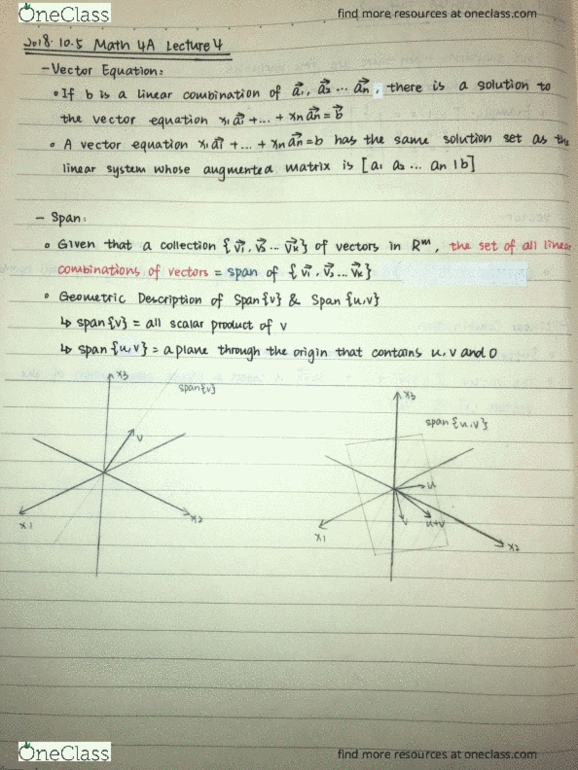 OneClass
find more resources at oneclass.com
2018.10.5 Math 4A Lecture 4
- Vector Equation:
• If b is a linear combination of a₁⃗, a₂⃗ ... aₙ⃗, there is a solution to
the vector equation x₁a₁⃗ + ... + xₙaₙ⃗ = b⃗
• A vector equation x₁a₁⃗ + ... + xₙaₙ⃗ = b has the same solution set as the
linear system whose augmented matrix is [a₁ a₂ ... aₙ | b]
- Span:
• Given that a collection {v₁⃗, v₂⃗ ... vₖ⃗} of vectors in Rᵐ, the set of all linear
combinations of vectors = span of {v₁⃗, v₂⃗ ... vₖ⃗}
• Geometric Description of Span{v} & Span{u,v}
↳ span{v} = all scalar product of v
↳ span{u,v} = a plane through the origin that contains u, v and 0
x3
span{v}
v
x1
x2
x3
span{u,v}
u
v
u+v
x1
x2
OneClass
find more resources at oneclass.com